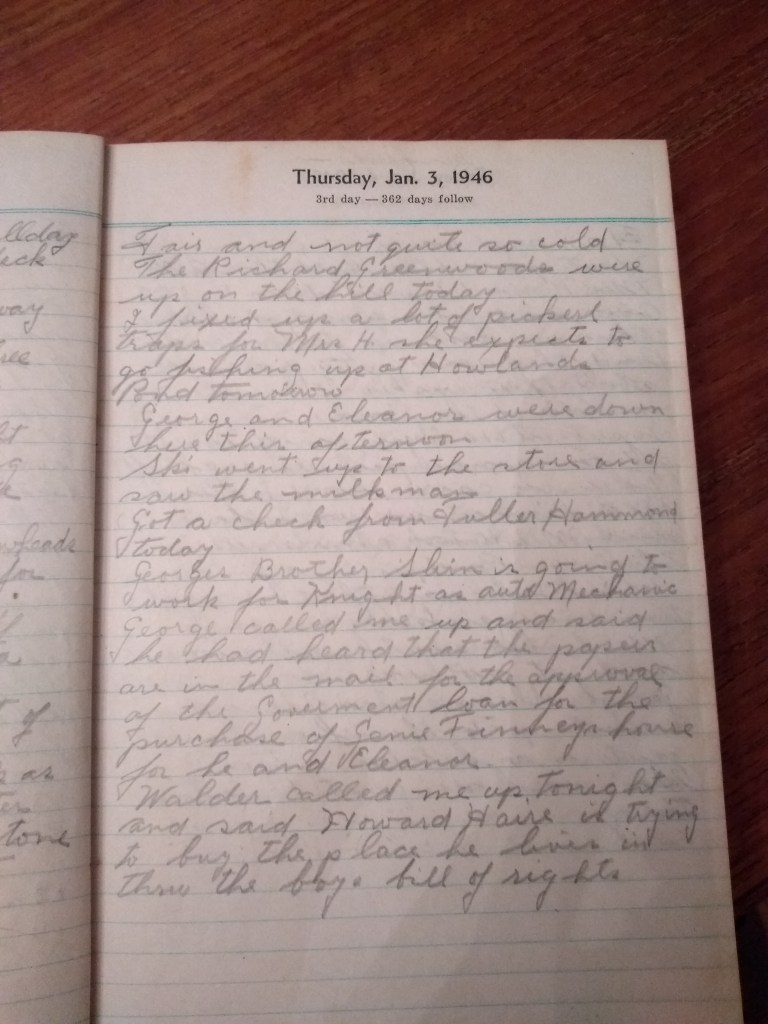 llday
eck
way
ee
for
of
as
tone
Thursday, Jan. 3, 1946
3rd day — 362 days follow
Fair and not quite so cold
The Richard Greenwoods were
up on the hill today
I fixed up a lot of pickerl
traps for Mrs H she expects to
go fishing up at Howlands
Pond tomorrow
George and Eleanor were down
here this afternoon
Ski went up to the store and
saw the milkman
Got a check from Fuller Hammond
today
Georges Brother is going to
work for Knight as auto Mechanic
George called me up and said
he had heard that the papers
are in the mail for the approval
of the Goverment loan for the
purchase of Genie Finneys house
for he and Eleanor
Walder called me up tonight
and said Howard Haire is trying
to buy the place he lives in
thru the boys bill of rights